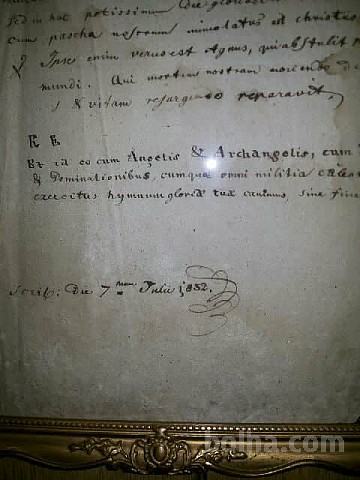 Sed in hac potissimum Die gloriosi
cum pascha nostrum immolatus est christus
Ipse enim verus est Agnus, qui abstulit
mundi. Qui mortem nostram moriendo d
& vitam resurgendo reparavit,
Et id eo cum Angelis & Archangelis, cum
& Dominationibus, cumqua omni militia cælest
exercitus hymnum gloriæ tuæ canimus, sine fine
Scrip: Die 7 Julii 1852.
bolha.com